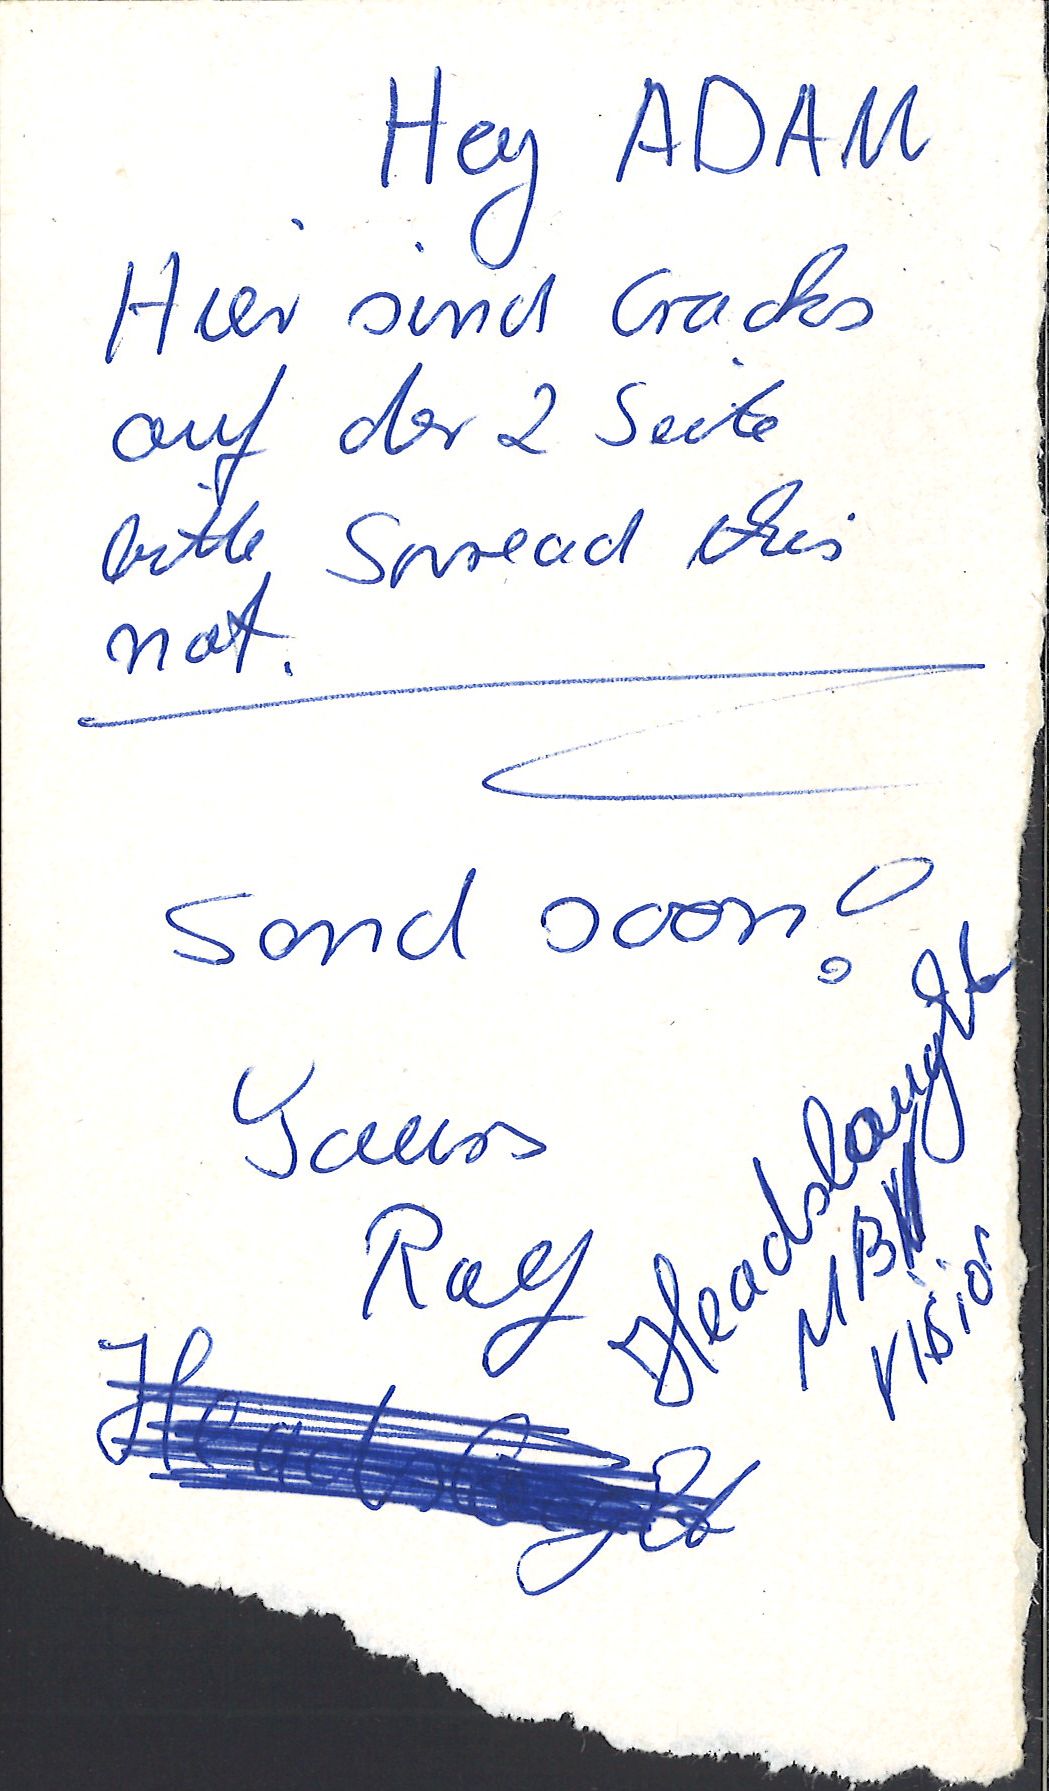 Hey ADAM
Hier sind Cracks
auf der 2 Seite
bitte Spread this
not.
Send soon?
Yours
Ray
Headslaught